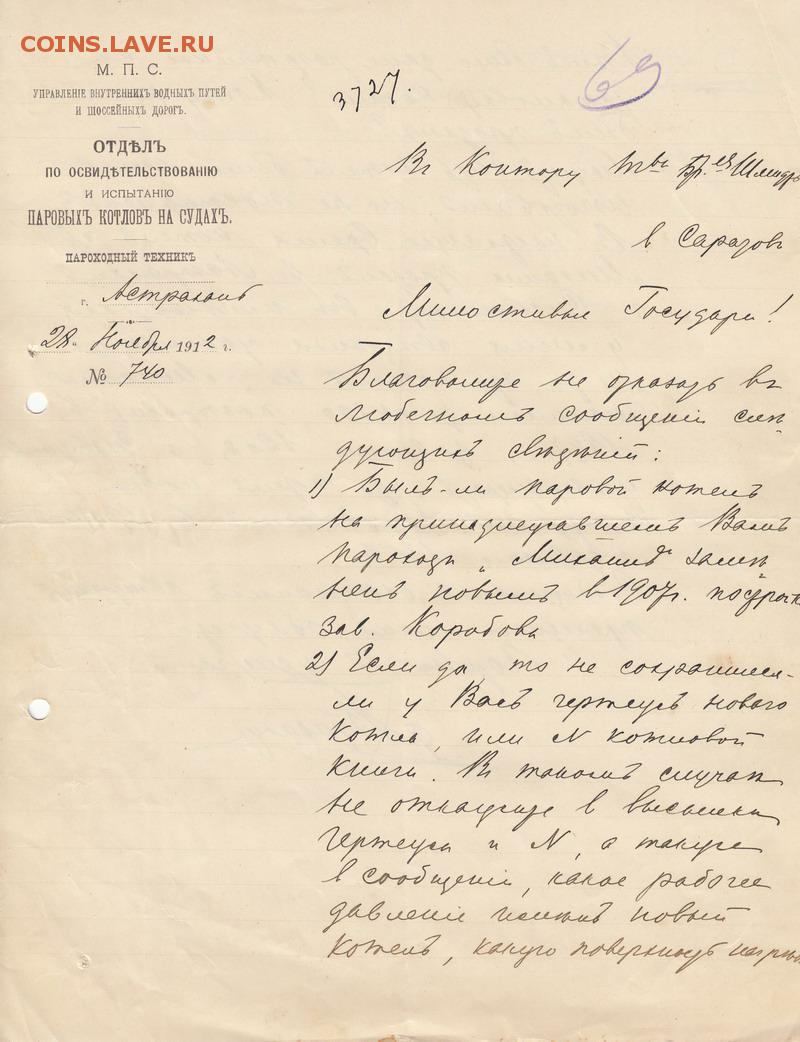 COINS.LAVE.RU
М. П. С.
УПРАВЛЕНІЕ ВНУТРЕННИХЪ ВОДНЫХЪ ПУТЕЙ
И ШОССЕЙНЫХЪ ДОРОГЪ.
ОТДѢЛЪ
ПО ОСВИДѢТЕЛЬСТВОВАНІЮ
И ИСПЫТАНІЮ
ПАРОВЫХЪ КОТЛОВЪ НА СУДАХЪ.
ПАРОХОДНЫЙ ТЕХНИКЪ
г. Астрахань
28 Ноября 1912 г.
№ 740
3727.
69
Въ Контору Т-ва Бр. ея Шмидтъ
в Саратовъ
Милостивые Государи!
Благоволите не отказать въ
любезномъ сообщеніи слѣ
дующихъ свѣдѣній:
1) Былъ-ли паровой котелъ
на принадлежавшемъ Вамъ
пароходѣ „Михаилъ" замѣ
ненъ новымъ в 1907 г. постройки
зав. Коробова
2) Если да, то не сохранился-
ли у Васъ чертежъ новаго
котла, или N котловой
книги. Въ такомъ случаѣ
не откажите в высылкѣ
чертежа и N, а также
в сообщеніи, какое рабочее
давленіе имѣлъ новый
котелъ, какую поверхность нагрѣва